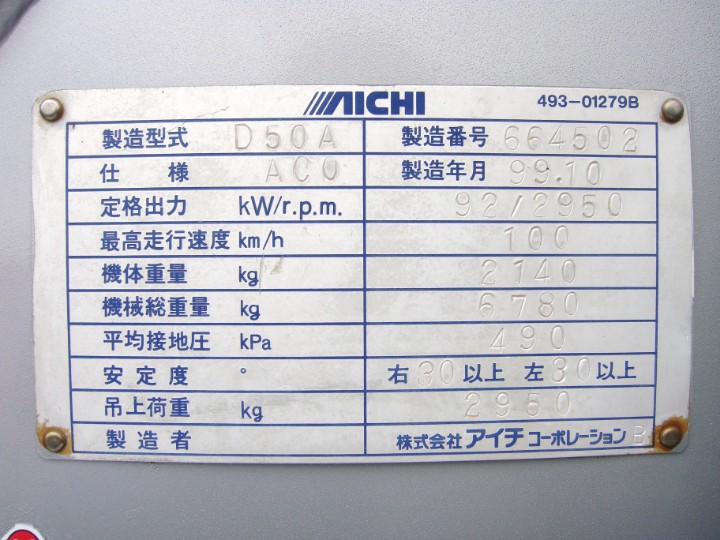 AICHI 493-01279B
製造型式 D50A 製造番号 664502
仕様 ACO 製造年月 99.10
定格出力 kW/r.p.m. 92/2950
最高走行速度 km/h 100
機体重量 kg 2140
機械総重量 kg 6780
平均接地圧 kPa 490
安定度 ° 右30以上 左30以上
吊上荷重 kg 2950
製造者 株式会社アイチコーポレーション B